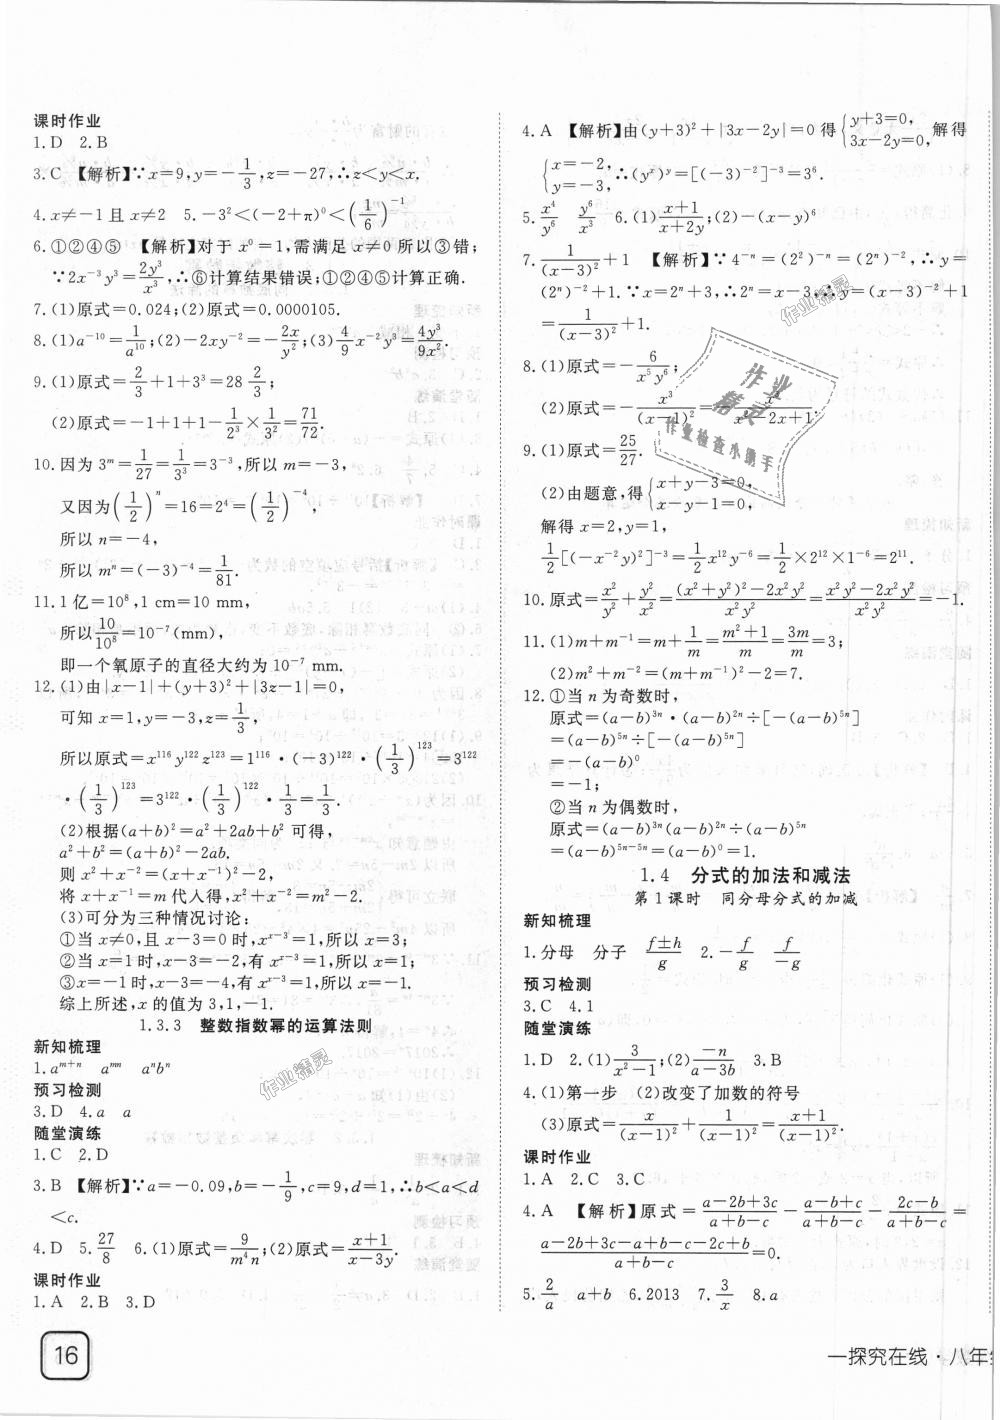 课时作业
1.D 2.B
3.C 【解析】∵x=9,y=-1/3,z=-27,∴z<y<x.
4.x≠-1且x≠2 5.-3²<(-2+π)⁰<(1/6)⁻¹
6.①②④⑤ 【解析】对于x⁰=1,需满足x≠0所以③错;
∵2x⁻³y³=2y³/x³,∴⑥计算结果错误;①②④⑤计算正确.
7.(1)原式=0.024;(2)原式=0.0000105.
8.(1)a⁻¹⁰=1/a¹⁰;(2)-2xy⁻²=-2x/y²;(3)4/9 x⁻²y³=4y³/9x².
9.(1)原式=2/3+1+3³=28 2/3;
(2)原式=-1+1+1-1/2³×1/3²=71/72.
10.因为3ᵐ=1/27=1/3³=3⁻³,所以m=-3,
又因为(1/2)ⁿ=16=2⁴=(1/2)⁻⁴,
所以n=-4,
所以mⁿ=(-3)⁻⁴=1/81.
11.1亿=10⁸,1 cm=10 mm,
所以10/10⁸=10⁻⁷(mm),
即一个氧原子的直径大约为10⁻⁷ mm.
12.(1)由|x-1|+(y+3)²+|3z-1|=0,
可知x=1,y=-3,z=1/3,
所以原式=x¹¹⁶y¹²²z¹²³=1¹¹⁶·(-3)¹²²·(1/3)¹²³=3¹²²
·(1/3)¹²³=3¹²²·(1/3)¹²²·1/3=1/3.
(2)根据(a+b)²=a²+2ab+b²可得,
a²+b²=(a+b)²-2ab.
则x²+x⁻²=(x+x⁻¹)²-2,
将x+x⁻¹=m代人得,x²+x⁻²=m²-2.
(3)可分为三种情况讨论:
①当x≠0,且x-3=0时,xˣ⁻³=1,所以x=3;
②当x=1时,x-3=-2,有xˣ⁻³=1,所以x=1;
③x=-1时,x-3=-4,有xˣ⁻³=1,所以x=-1.
综上所述,x的值为3,1,-1.
1.3.3 整数指数幂的运算法则
新知梳理
1.aᵐ⁺ⁿ aᵐⁿ aⁿbⁿ
预习检测
3.D 4.a a
随堂演练
1.C 2.D
3.B 【解析】∵a=-0.09,b=-1/9,c=9,d=1,∴b<a<d
<c.
4.D 5.27/8 6.(1)原式=9/m⁴n;(2)原式=x+1/x-3y.
课时作业
1.A 2.B 3.D
16
4.A 【解析】由(y+3)²+|3x-2y|=0得{y+3=0, 3x-2y=0, 解得
{x=-2, y=-3. ∴(yˣ)ʸ=[(-3)⁻²]⁻³=3⁶.
5.x⁴/y⁶ y⁶/x³ 6.(1)x+1/x+2y;(2)-(x-y)⁶
7.1/(x-3)²+1 【解析】∵4⁻ⁿ=(2²)⁻ⁿ=(2ⁿ)⁻²,∴y=
(2ⁿ)⁻²+1.∵x=2ⁿ+3,∴2ⁿ=x-3,∴y=(x-3)⁻²+1
=1/(x-3)²+1.
8.(1)原式=-6/x⁵y⁶;
(2)原式=-x³/(x-1)²=-x³/x²-2x+1.
9.(1)原式=25/27.
(2)由题意,得{x+y-3=0, x-y-1=0.
解得x=2,y=1,
1/2[(-x⁻²y)²]⁻³=1/2x¹²y⁻⁶=1/2×2¹²×1⁻⁶=2¹¹.
10.原式=x²/y²+y²/x²-(x²+y²)²/x²y²=(x²+y²)²-2x²y²/x²y²-(x²+y²)²/x²y²=-2x²y²/x²y²=-1.
11.(1)m+m⁻¹=m+1/m=m²+1/m=3m/m=3;
(2)m²+m⁻²=(m+m⁻¹)²-2=7.
12.①当n为奇数时,
原式=(a-b)³ⁿ·(a-b)²ⁿ÷[-(a-b)⁵ⁿ]
=(a-b)⁵ⁿ÷[-(a-b)⁵ⁿ]
=-(a-b)⁰
=-1;
②当n为偶数时,
原式=(a-b)³ⁿ(a-b)²ⁿ÷(a-b)⁵ⁿ
=(a-b)⁵ⁿ⁻⁵ⁿ=(a-b)⁰=1.
1.4 分式的加法和减法
第1课时 同分母分式的加减
新知梳理
1.分母 分子 f±h/g 2.-f/g f/-g
预习检测
3.C 4.1
随堂演练
1.D 2.(1)3/x²-1;(2)-n/a-3b 3.B
4.(1)第一步 (2)改变了加数的符号
(3)原式=x/(x-1)²+1/(x-1)²=x+1/(x-1)².
课时作业
1.A 2.C 3.C
4.A 【解析】原式=a-2b+3c/a+b-c-a-b+c/a+b-c-2c-b/a+b-c=
a-2b+3c-a+b-c-2c+b/a+b-c=0.
5.2/a a+b 6.2013 7.3/x 8.a
一探究在线·八年
作业精灵
作业检查小助手
作业精灵
作业精灵